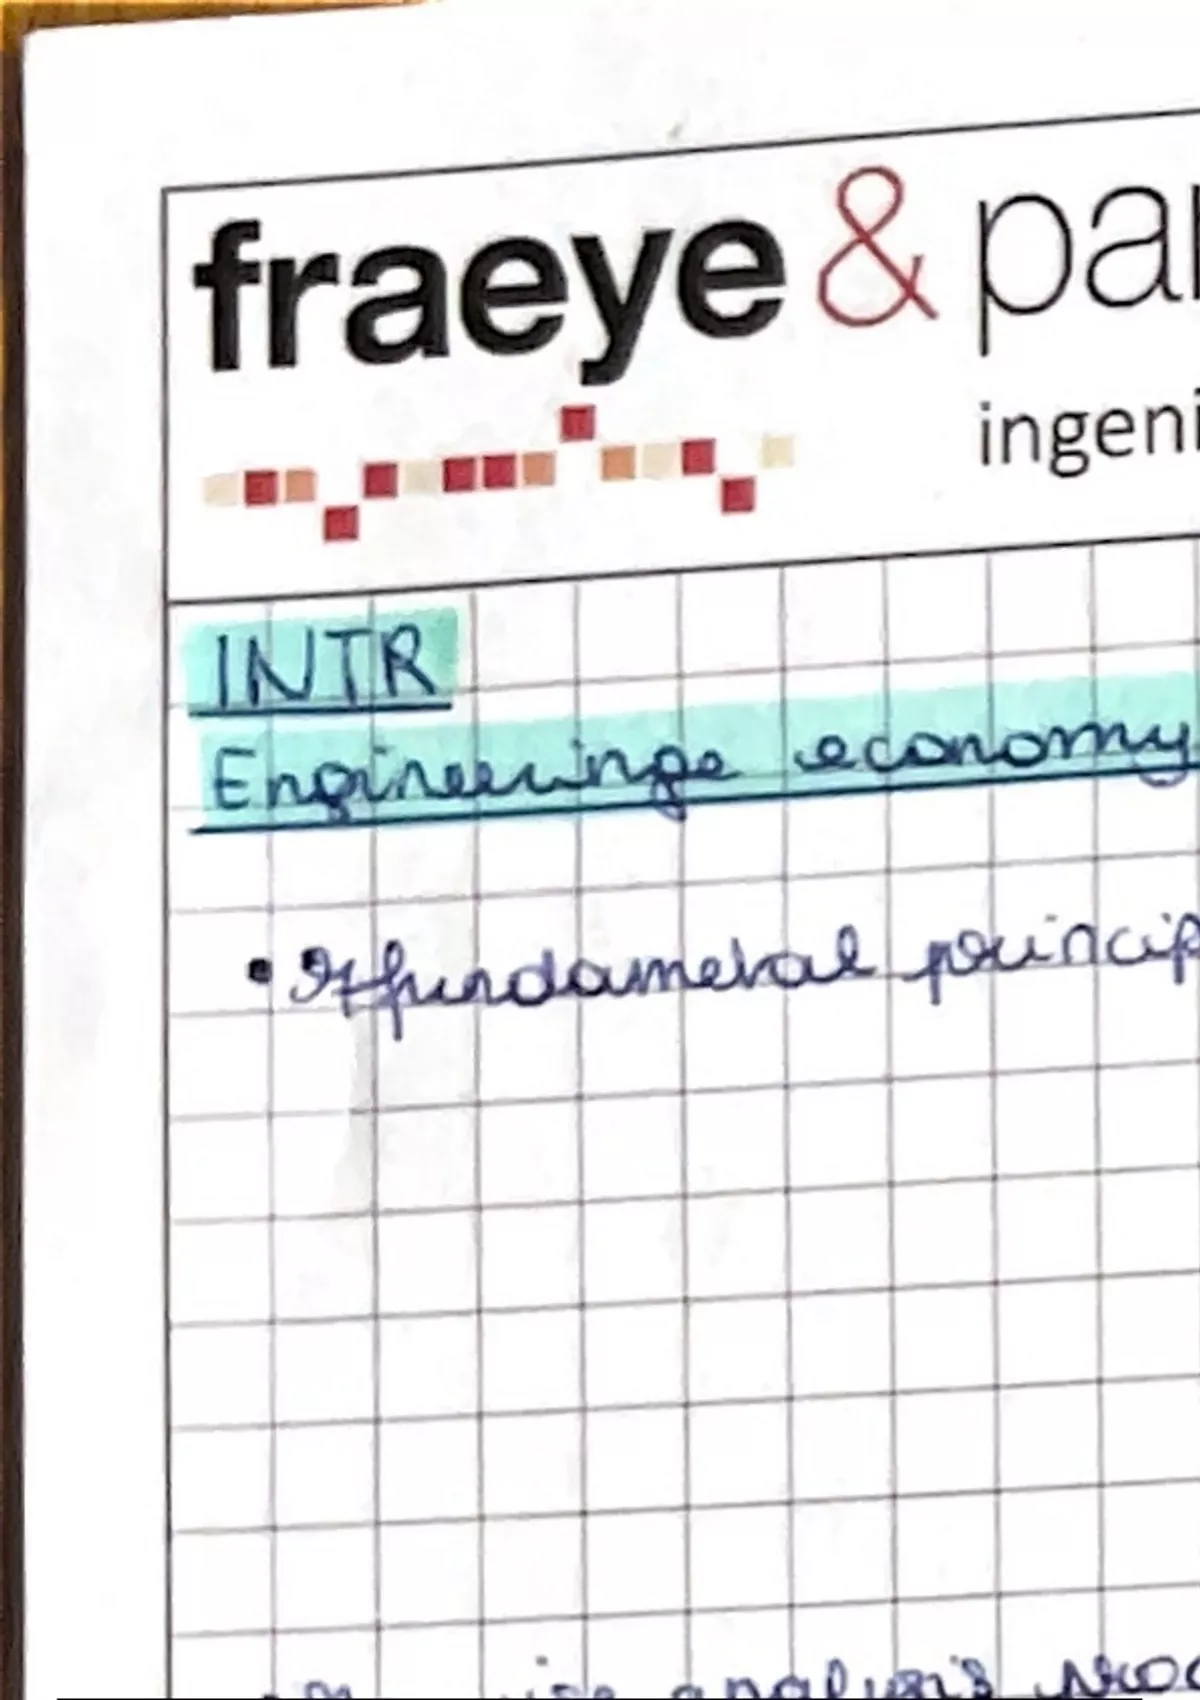 fraeye & par
ingeni
INTR
Engineeringe economy
• 7 fundametal princip
analysis